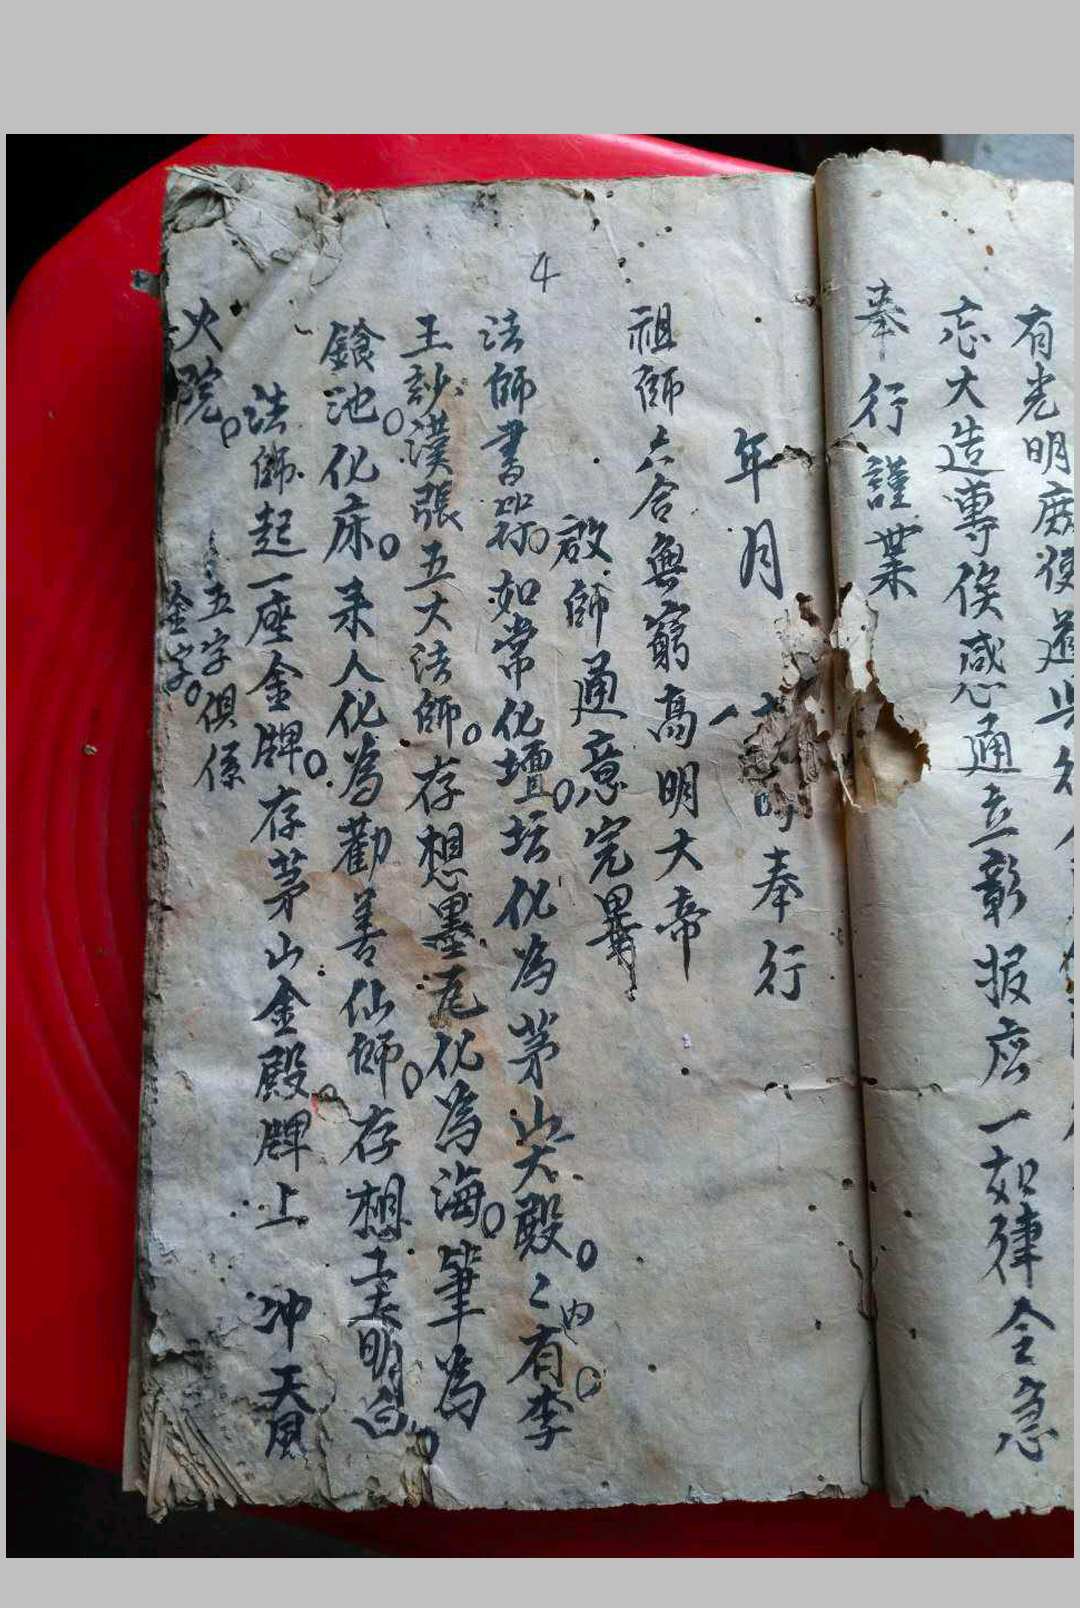 有光明
忘大造專俟感通立彰报应一如律令急
奉行謹業
年月
時奉行
祖師六合無窮高明大帝
啟師通意完畢
4
法師書符如常化壇坛化為茅山大殿〻内有李
王訬漢張五大法師存想墨瓦化為海筆為
鎗池化床来人化為勸善仙師存想主美明白
法師起一座金牌存茅山金殿牌上 冲天風
火院
五字俱係
金字